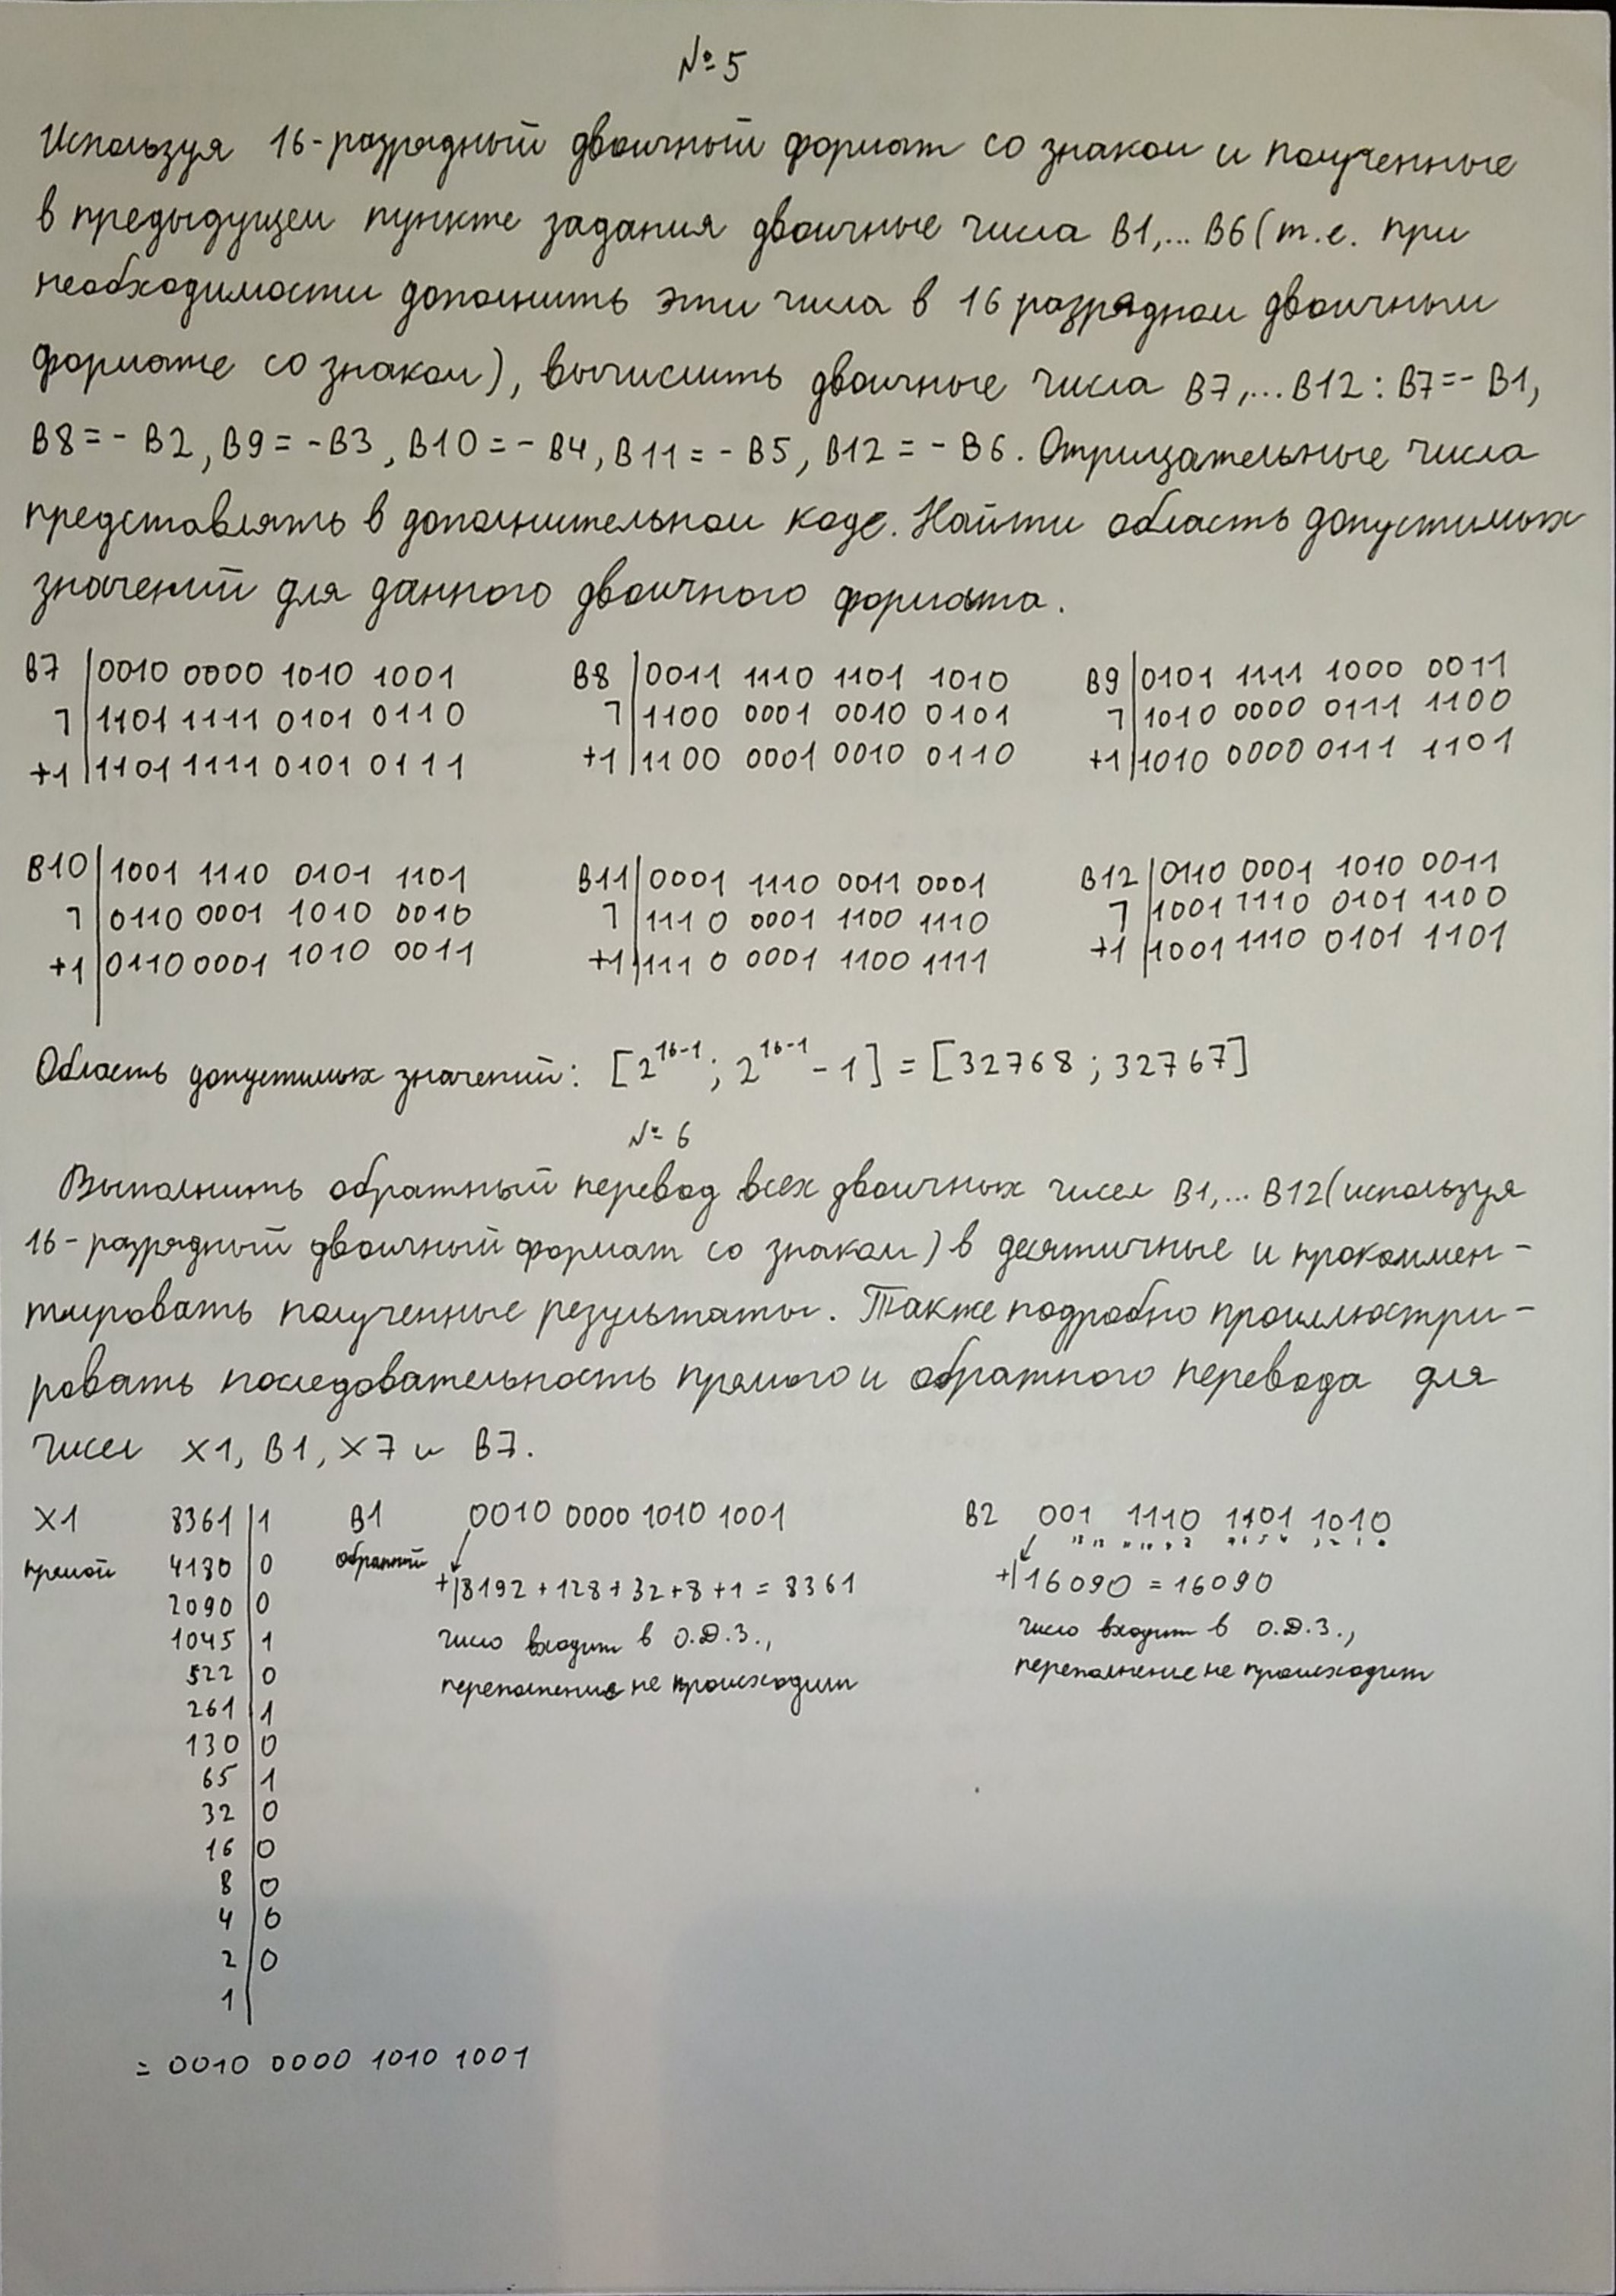 № 5
Используя 16-разрядный двоичный формат со знаком и полученные
в предыдущем пункте задания двоичные числа B1,... B6 (т.е. при
необходимости дополнить эти числа в 16 разрядном двоичным
формате со знаком), вычислить двоичные числа B7,... B12: B7=-B1,
B8=-B2, B9=-B3, B10=-B4, B11=-B5, B12=-B6. Отрицательные числа
представлять в дополнительном коде. Найти область допустимых
значений для данного двоичного формата.
B7 |0010 0000 1010 1001 B8 |0011 1110 1101 1010 B9 |0101 1111 1000 0011
¬ |1101 1111 0101 0110 ¬ |1100 0001 0010 0101 ¬ |1010 0000 0111 1100
+1 |1101 1111 0101 0111 +1 |1100 0001 0010 0110 +1 |1010 0000 0111 1101
B10 |1001 1110 0101 1101 B11 |0001 1110 0011 0001 B12 |0110 0001 1010 0011
¬ |0110 0001 1010 0010 ¬ |1110 0001 1100 1110 ¬ |1001 1110 0101 1100
+1 |0110 0001 1010 0011 +1 |1110 0001 1100 1111 +1 |1001 1110 0101 1101
Область допустимых значений: [2^16-1; 2^16-1 - 1] = [32768; 32767]
№ 6
Выполнить обратный перевод всех двоичных чисел B1,... B12 (используя
16-разрядный двоичный формат со знаком) в десятичные и прокоммен-
тировать полученные результаты. Также подробно проиллюстри-
ровать последовательность прямого и обратного перевода для
чисел X1, B1, X7 и B7.
X1 8361|1 B1 0010 0000 1010 1001 B2 001 1110 1101 1010
прямой 4180|0 обратный +|8192+128+32+8+1=8361 +|16090=16090
2090|0
1045|1 число входит в О.Д.З., число входит в О.Д.З.,
522|0 переполнение не происходит переполнение не происходит
261|1
130|0
65|1
32|0
16|0
8|0
4|0
2|0
1|
= 0010 0000 1010 1001